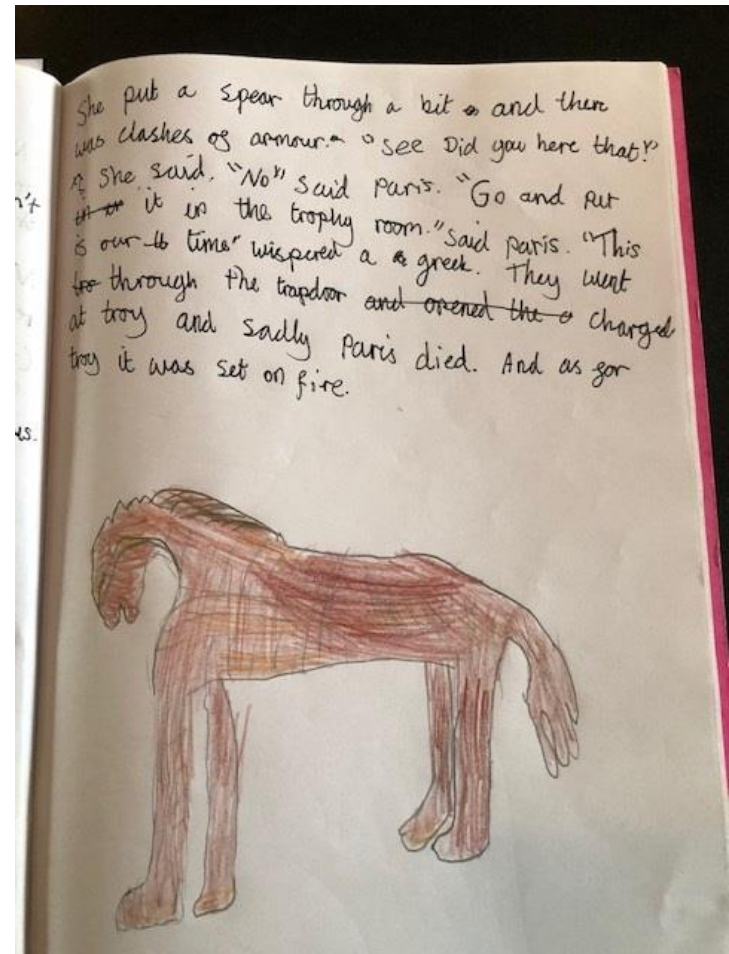 She put a spear through a bit and there
was clashes of armour. "See Did you here that!"
she said. "No" said paris. "Go and put
it in the trophy room." said paris. "This
is our time" wispered a greek. They went
through the trapdoor and opened the charged
at troy and sadly Paris died. And as for
troy it was set on fire.
n't
us.